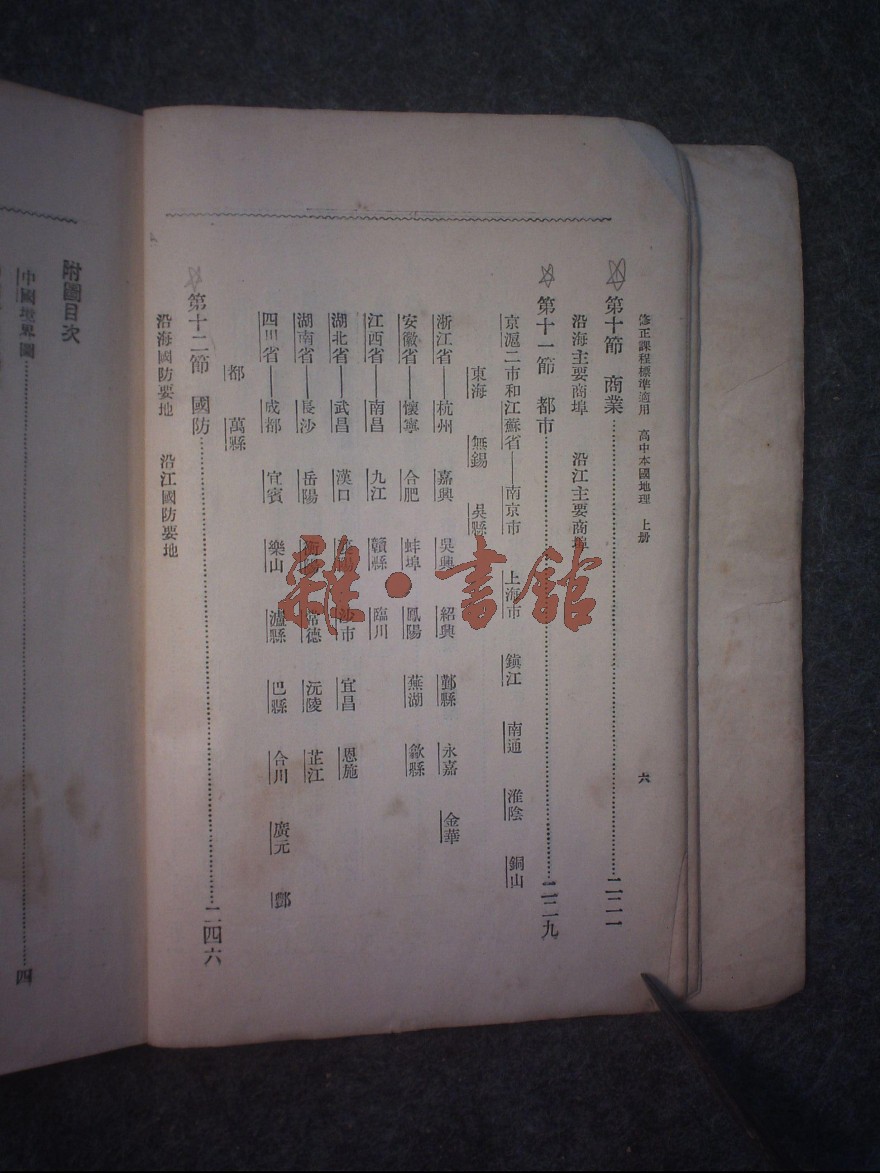 修正課程標準適用 高中本國地理 上册 六
第十節 商業……二二一
沿海主要商埠 沿江主要商埠
第十一節 都市……二二九
京滬二市和江蘇省——南京市 上海市 鎭江 南通 淮陰 銅山
東海 無錫 吳縣
浙江省——杭州 嘉興 吳興 紹興 鄞縣 永嘉 金華
安徽省——懷寧 合肥 蚌埠 鳳陽 蕪湖 歙縣
江西省——南昌 九江 贛縣 臨川
湖北省——武昌 漢口 沙市 宜昌 恩施
湖南省——長沙 岳陽 衡陽 常德 沅陵 芷江
四川省——成都 宜賓 樂山 瀘縣 巴縣 合川 廣元 酆
都 萬縣
第十二節 國防……二四六
沿海國防要地 沿江國防要地
附圖目次
中國壃界圖……四
雜·書館